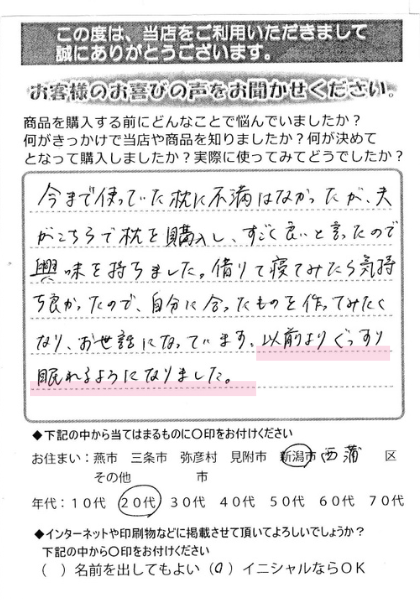 この度は、当店をご利用いただきまして
誠にありがとうございます。
お客様のお喜びの声をお聞かせください。
商品を購入する前にどんなことで悩んでいましたか？
何がきっかけで当店や商品を知りましたか？何が決めて
となって購入しましたか？実際に使ってみてどうでしたか？
今まで使っていた枕に不満はなかったが、夫
がこちらで枕を購入し、すごく良いと言ったので
興味を持ちました。借りて寝てみたら気持
ち良かったので、自分に合ったものを作ってみたく
なり、お世話になっています。以前よりぐっすり
眠れるようになりました。
◆下記の中から当てはまるものに〇印をお付けください
お住まい：燕市 三条市 弥彦村 見附市 新潟市 西蒲 区
その他 市
年代：１０代 ２０代 ３０代 ４０代 ５０代 ６０代 ７０代
◆インターネットや印刷物などに掲載させて頂いてよろしいでしょうか？
下記の中から〇印をお付けください
（ ）名前を出してもよい（〇）イニシャルならＯＫ